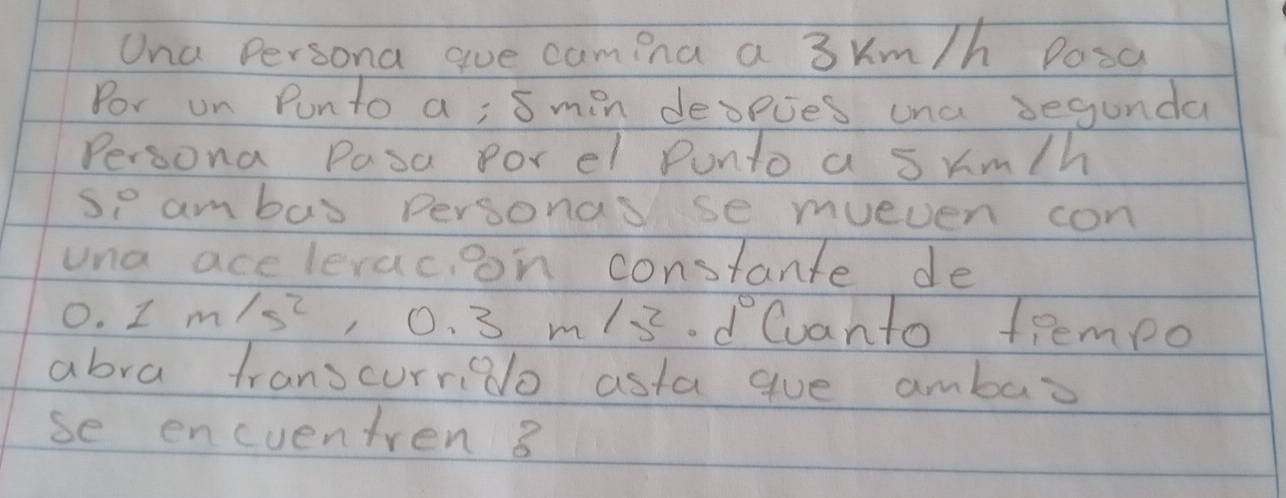 Una Persona que camina a 3 Km/h Pasa
Por un Punto a; 5 min despúes una segunda
Persona Pasa Por el Punto a 5 Km/h
Si ambas Personas se mueven con
una aceleración constante de
0.1 m/s², 0.3 m/s². d°Cuanto tiempo
abra transcurrido asta que ambas
se encuentren ?